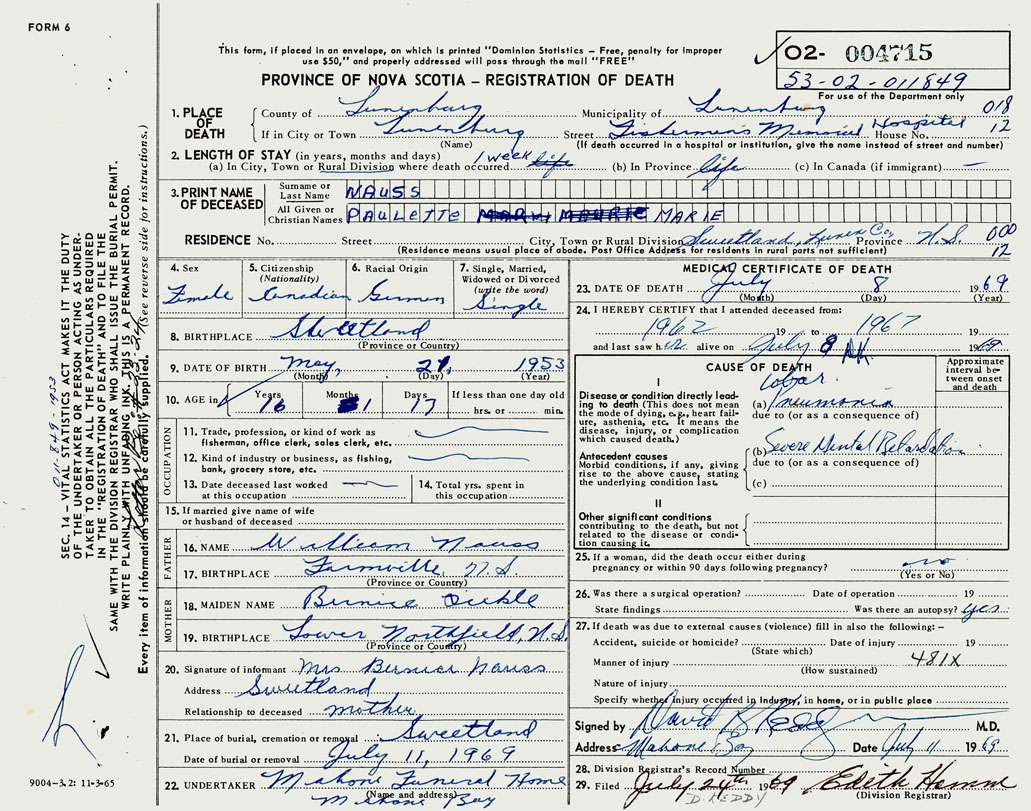 FORM 6
This form, if placed in an envelope, on which is printed "Dominion Statistics – Free, penalty for improper
use $50," and properly addressed will pass through the mail "FREE"
PROVINCE OF NOVA SCOTIA – REGISTRATION OF DEATH
02- 004715
53-02-011849
For use of the Department only
1. PLACE OF DEATH
County of Lunenburg Municipality of Lunenburg 018
If in City or Town Lunenburg Street Fishermen's Memorial Hospital House No. 12
(Name) (If death occurred in a hospital or institution, give the name instead of street and number)
2. LENGTH OF STAY (in years, months and days)
(a) In City, Town or Rural Division where death occurred 1 week life (b) In Province life (c) In Canada (if immigrant) —
3. PRINT NAME OF DECEASED
Surname or Last Name NAUSS
All Given or Christian Names PAULETTE MARIE
RESIDENCE No. Street City, Town or Rural Division Sweetland, Lunen Co, Province N.S. 000
(Residence means usual place of abode. Post Office Address for residents in rural parts not sufficient) 12
4. Sex
Female
5. Citizenship
(Nationality)
Canadian
6. Racial Origin
German
7. Single, Married,
Widowed or Divorced
(write the word)
Single
8. BIRTHPLACE Sweetland
(Province or Country)
9. DATE OF BIRTH May, 21, 1953
(Month) (Day) (Year)
10. AGE in Years Months Days If less than one day old
16 1 17 hrs. or min.
OCCUPATION
11. Trade, profession, or kind of work as
fisherman, office clerk, sales clerk, etc.
12. Kind of industry or business, as fishing,
bank, grocery store, etc.
13. Date deceased last worked
at this occupation
14. Total yrs. spent in
this occupation
15. If married give name of wife
or husband of deceased
FATHER
16. NAME William Nauss
17. BIRTHPLACE Farmville, N.S.
(Province or Country)
MOTHER
18. MAIDEN NAME Bernice Oickle
19. BIRTHPLACE Lower Northfield, N.S.
(Province or Country)
20. Signature of informant Mrs Bernice Nauss
Address Sweetland
Relationship to deceased mother
21. Place of burial, cremation or removal Sweetland
Date of burial or removal July 11, 1969
22. UNDERTAKER Mahone Funeral Home
(Name and address)
Mahone Bay
MEDICAL CERTIFICATE OF DEATH
23. DATE OF DEATH July 8 1969
(Month) (Day) (Year)
24. I HEREBY CERTIFY that I attended deceased from:
1962 19 to 1967 19
and last saw her alive on July 8 1969
CAUSE OF DEATH
Approximate
interval be-
tween onset
and death
I
Disease or condition directly lead-
ing to death (This does not mean
the mode of dying, e.g., heart fail-
ure, asthenia, etc. It means the
disease, injury, or complication
which caused death.)
Lobar
(a) Pneumonia
due to (or as a consequence of)
Antecedent causes
Morbid conditions, if any, giving
rise to the above cause, stating
the underlying condition last.
(b) Severe Mental Retardation
due to (or as a consequence of)
(c)
II
Other significant conditions
contributing to the death, but not
related to the disease or condi-
tion causing it.
25. If a woman, did the death occur either during
pregnancy or within 90 days following pregnancy? no
(Yes or No)
26. Was there a surgical operation? Date of operation 19
State findings Was there an autopsy? yes
27. If death was due to external causes (violence) fill in also the following: –
Accident, suicide or homicide? Date of injury 19
(State which)
Manner of injury 481X
(How sustained)
Nature of injury
Specify whether injury occurred in industry, in home, or in public place
Signed by David M.D.
Address Mahone Bay Date July 11 1969
28. Division Registrar's Record Number
29. Filed July 24th 1969 Edith
D. REDDY (Division Registrar)
SEC. 14 – VITAL STATISTICS ACT MAKES IT THE DUTY
OF THE UNDERTAKER OR PERSON ACTING AS UNDER-
TAKER TO OBTAIN ALL THE PARTICULARS REQUIRED
IN THE "REGISTRATION OF DEATH" AND TO FILE THE
SAME WITH THE DIVISION REGISTRAR WHO SHALL ISSUE THE BURIAL PERMIT.
WRITE PLAINLY WITH UNFADING INK. THIS IS A PERMANENT RECORD.
Every item of information should be carefully supplied. (See reverse side for instructions.)
011-849-1953
9004-3.2: 11-3-65